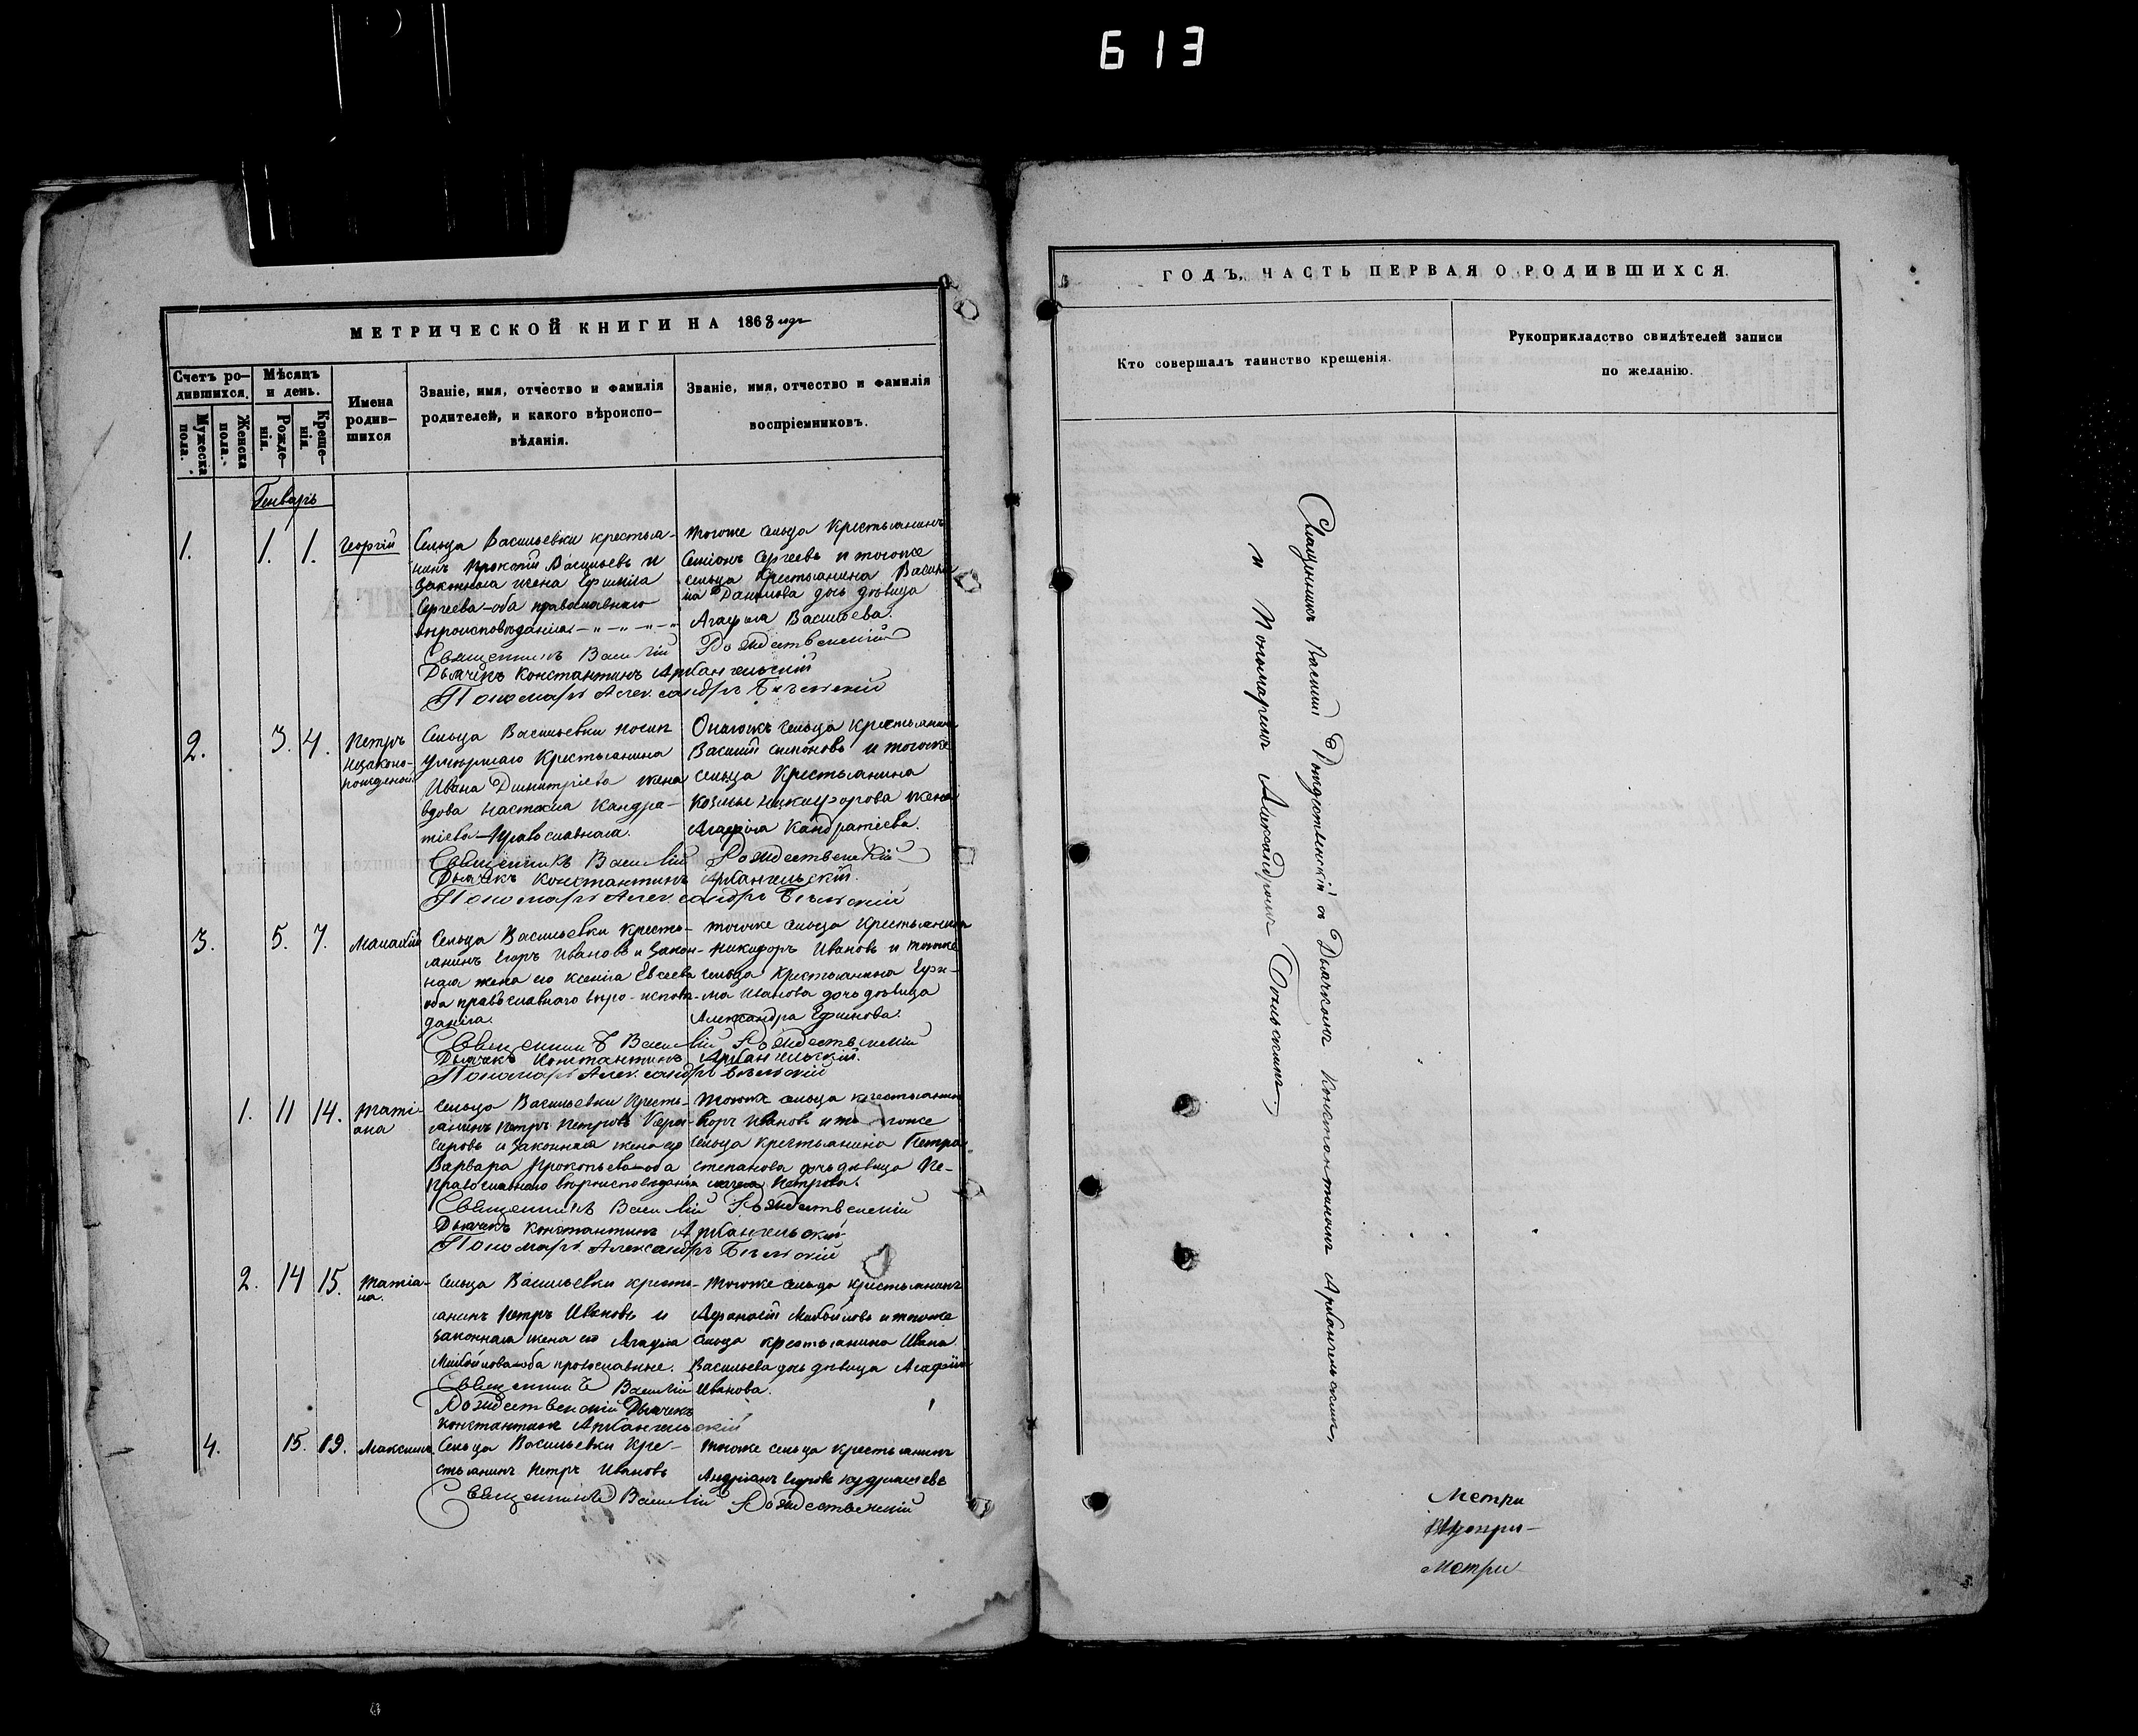 613
МЕТРИЧЕСКОЙ КНИГИ НА 1868 годъ
Счетъ ро-
дившихся.
Мужеска
пола.
Женска
пола.
Мѣсяцъ
и день.
Рожде-
нія.
Креще-
нія.
Имена
родив-
шихся
Званіе, имя, отчество и фамилія
родителей, и какого вѣроиспо-
вѣданія.
Званіе, имя, отчество и фамилія
воспріемниковъ.
Генварь
1. 1. 1. Георгій
Сельца Васильевки крестья-
нинъ Прокопій Васильевъ и
законная жена Ефимія
Сергеева-оба православнаго
вѣроисповѣданія.
Тогоже сельца Крестьянинъ
Симіонъ Сергеевъ и тогоже
сельца Крестьянина Васи
Данилова дочь дѣвица
Агафія Васильева.
Священникъ Василій Рождественскій
Дьячекъ Константинъ Архангельскій
Пономарь Александръ Бѣльскій
2. 3. 4. Петръ
незаконо-
рожденой
Сельца Васильевки
умершаго Крестьянина
Ивана Димитріева жена
вдова Настасія Кандра-
тіева-Православная.
сельца Крестьянинъ
Василій Симоновъ и тогоже
сельца Крестьянина
Козмы Никифорова жена
Агафія Кандратіева.
Священникъ Василій Рождественскій
Дьячекъ Константинъ Архангельскій.
Пономарь Александръ Бѣльскій
3. 5. 7. Малахій
Сельца Васильевки кресть-
янинъ Егоръ Ивановъ и закон-
ная жена его Ксенія Евсеева
оба православнаго вѣро-исповѣ-
данія.
Тогоже сельца Крестьянинъ
Никифоръ Ивановъ и тогоже
сельца Крестьянина Ефи-
ма Иванова дочь дѣвица
Александра Ефимова.
Священникъ Василій Рождественскій
Дьячекъ Константинъ Архангельскій.
Пономарь Александръ Бѣльскій
1. 11 14. Тати-
ана
Сельца Васильевки Кресть-
янинъ Петръ Петровъ
и законная жена его
Варвара Прокопьева-оба
православнаго вѣроисповѣданія
Тогоже сельца крестьянинъ
Ивановъ и тогоже
сельца крестьянина Петра
Степанова дочь дѣвица Пе-
лагея Петрова.
Священникъ Василій Рождественскій
Дьячекъ Константинъ Архангельскій
Пономарь Александръ Бѣльскій
2. 14 15. Татіа-
на.
Сельца Васильевки кресть-
янинъ Петръ Ивановъ и
законная жена его Агафія
Михайлова-оба православные.
Тогоже сельца крестьянинъ
Афанасій Михайловъ и тогоже
сельца крестьянина Ивана
Васильева дочь дѣвица Агафія
Иванова.
Священникъ Василій
Рождественскій Дьячекъ
Константинъ Архангельскій
4. 15. 19. Максимъ
Сельца Васильевки Кре-
стьянинъ Петръ Ивановъ
Тогоже сельца крестьянинъ
Андріанъ Егоровъ Кудряшевъ
Священникъ Василій Рождественскій
ГОДЪ. ЧАСТЬ ПЕРВАЯ О РОДИВШИХСЯ.
Кто совершалъ таинство крещенія.
Рукоприкладство свидѣтелей записи
по желанію.
Священникъ Василій Рождественскій съ Дьячкомъ Константиномъ Архангельскимъ,
и Пономаремъ Александромъ Бѣльскимъ
Метри
Метри